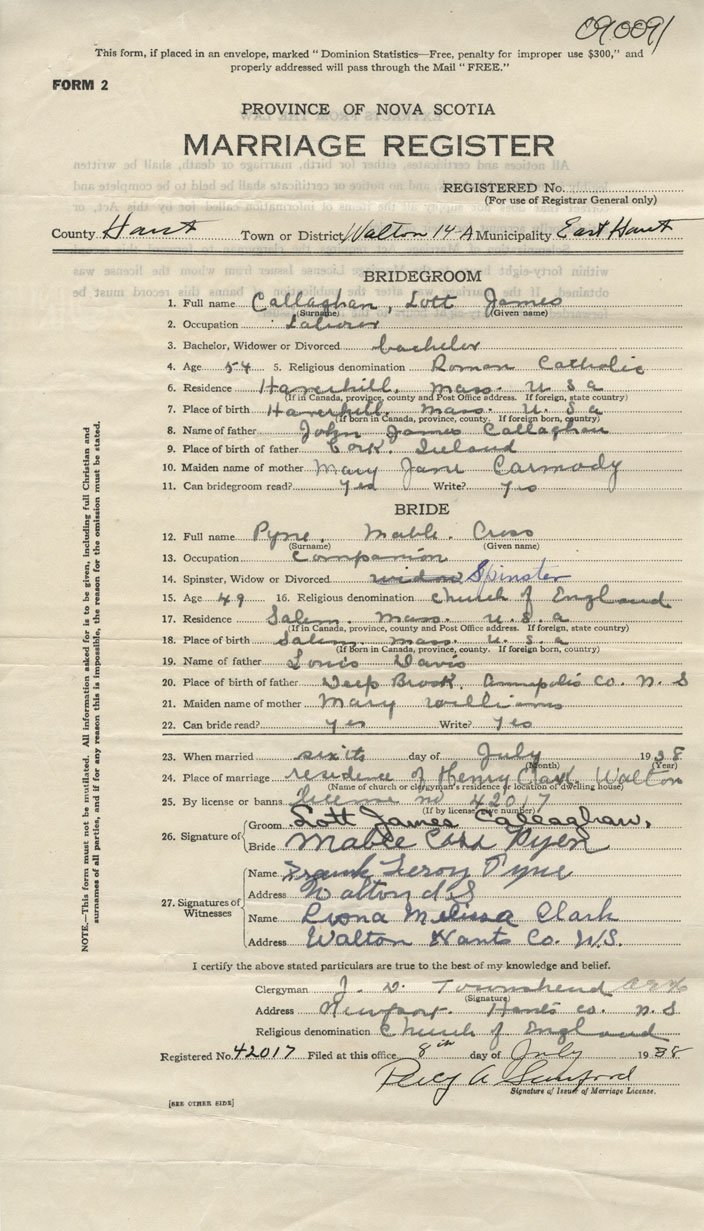 09009/
This form, if placed in an envelope, marked "Dominion Statistics—Free, penalty for improper use $300," and
properly addressed will pass through the Mail "FREE."
FORM 2
PROVINCE OF NOVA SCOTIA
MARRIAGE REGISTER
REGISTERED No.
(For use of Registrar General only)
County Hants Town or District Walton 14-A Municipality East Hants
BRIDEGROOM
1. Full name Callaghan, Lott James
(Surname) (Given name)
2. Occupation Laborer
3. Bachelor, Widower or Divorced bachelor
4. Age 54 5. Religious denomination Roman Catholic
6. Residence Haverhill, Mass. U. S. a
(If in Canada, province, county and Post Office address. If foreign, state country)
7. Place of birth Haverhill, Mass. U. S. a
(If born in Canada, province, county. If foreign born, country)
8. Name of father John James Callaghan
9. Place of birth of father Cork. Ireland
10. Maiden name of mother Mary Jane Carmody
11. Can bridegroom read? yes Write? yes
BRIDE
12. Full name Pyne. Mable. Cross
(Surname) (Given name)
13. Occupation Companion
14. Spinster, Widow or Divorced widow Spinster
15. Age 49 16. Religious denomination Church of England
17. Residence Salem. Mass. U. S. a
(If in Canada, province, county and Post Office address. If foreign, state country)
18. Place of birth Salem. Mass. U. S. a
(If born in Canada, province, county. If foreign born, country)
19. Name of father Louis Davis
20. Place of birth of father Deep Brook. Annapolis Co. N. S
21. Maiden name of mother Mary Williams
22. Can bride read? yes Write? yes
23. When married sixth day of July 1938
(Month) (Year)
24. Place of marriage residence of Henry Clark. Walton
(Name of church or clergyman's residence or location of dwelling house)
25. By license or banns License no 42017
(If by license give number)
26. Signature of Groom Lott James Callaghan.
Bride Mable Pyen
27. Signatures of Witnesses
Name Frank Leroy Pyne
Address Walton N S
Name Leona Melissa Clark
Address Walton Hants Co. N.S.
I certify the above stated particulars are true to the best of my knowledge and belief.
Clergyman J. Townshend
(Signature)
Address Newport. Hants co. N. S
Religious denomination Church of England
Registered No. 42017 Filed at this office 8th day of July 1938
Percy A Sanford
Signature of Issuer of Marriage License.
[SEE OTHER SIDE]
NOTE.—This form must not be mutilated. All information asked for is to be given, including full Christian and
surnames of all parties, and if for any reason this is impossible, the reason for the omission must be stated.